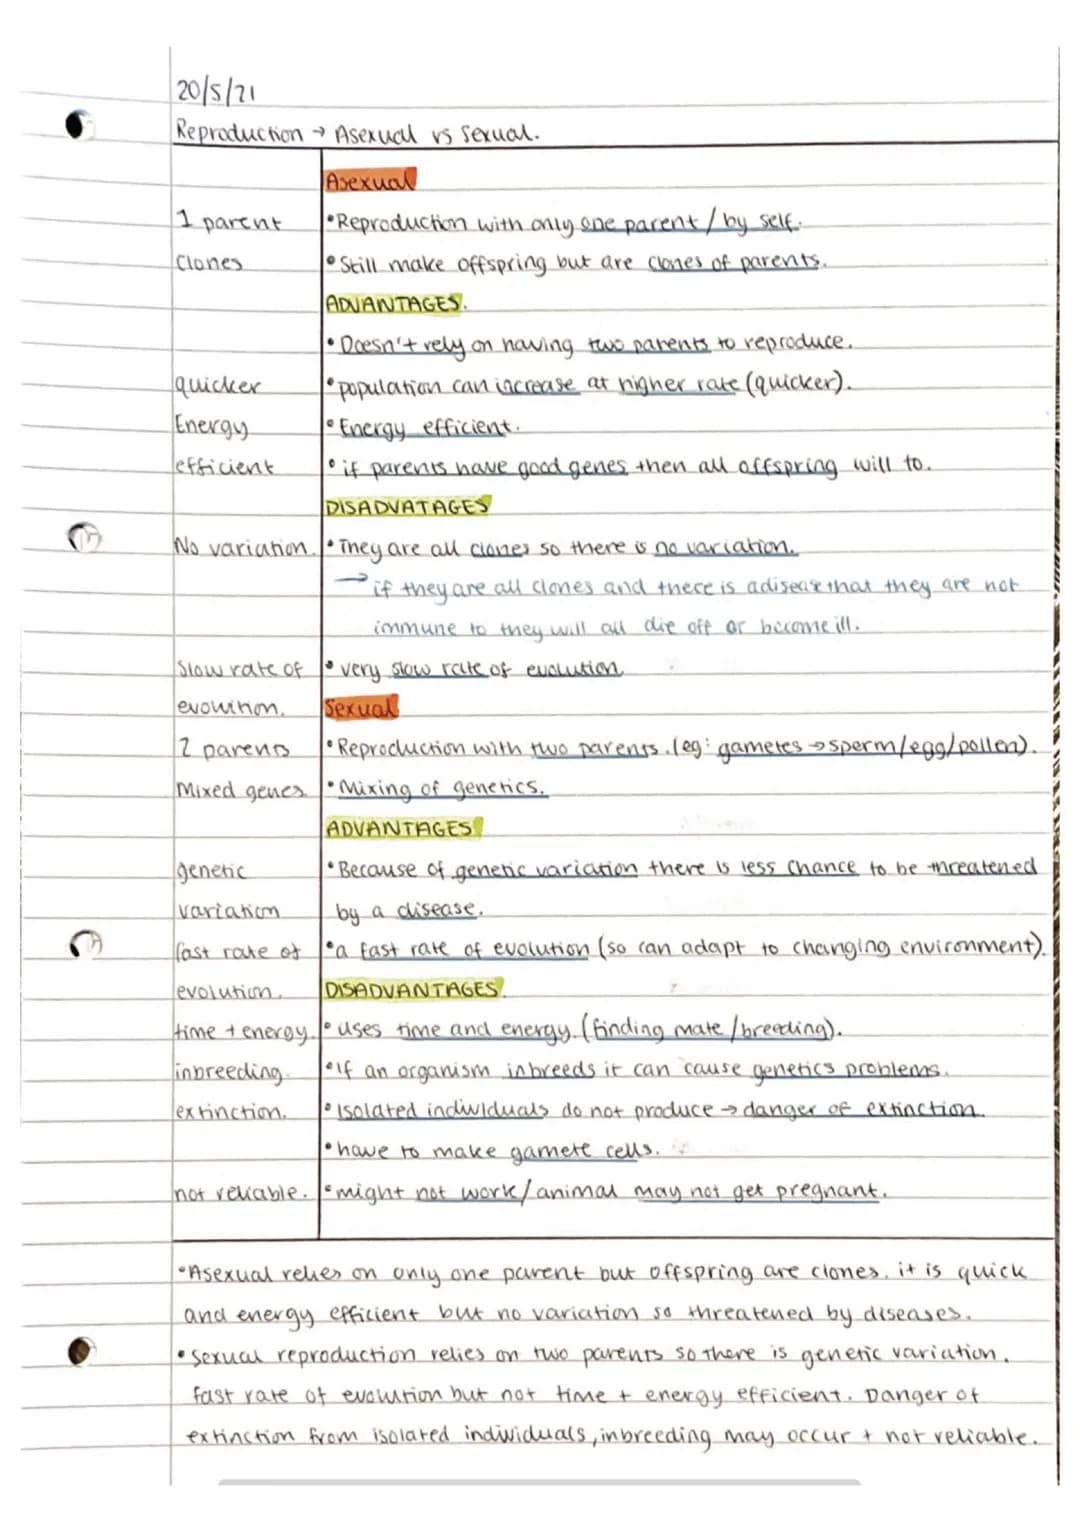 20/5/21
Reproduction → Asexual vs Sexual.
Asexual
1 parent •Reproduction with only one parent / by self.
Clones •Still make offspring but are clones of parents.
ADVANTAGES.
•Doesn't rely on having two parents to reproduce.
quicker •population can increase at higher rate (quicker).
Energy •Energy efficient.
efficient •if parents have good genes then all offspring will to.
DISADVATAGES
No variation. •They are all clones so there is no variation.
→ if they are all clones and there is a disease that they are not
immune to they will all die off or become ill.
Slow rate of •very slow rate of evolution
evolution. Sexual
2 parents •Reproduction with two parents. (eg: gametes → sperm/egg/pollen).
Mixed genes •Mixing of genetics.
ADVANTAGES
genetic •Because of genetic variation there is less chance to be threatened
variation by a disease.
fast rate of •a fast rate of evolution (so can adapt to changing environment).
evolution. DISADVANTAGES
time + energy. •uses time and energy. (finding mate / breeding).
inbreeding. •If an organism inbreeds it can cause genetics problems.
extinction. •Isolated individuals do not produce → danger of extinction.
•have to make gamete cells.
not reliable. •might not work/animal may not get pregnant.
•Asexual relies on only one parent but offspring are clones. it is quick
and energy efficient but no variation so threatened by diseases.
•Sexual reproduction relies on two parents so there is genetic variation.
fast rate of evolution but not time + energy efficient. Danger of
extinction from isolated individuals, inbreeding may occur + not reliable.